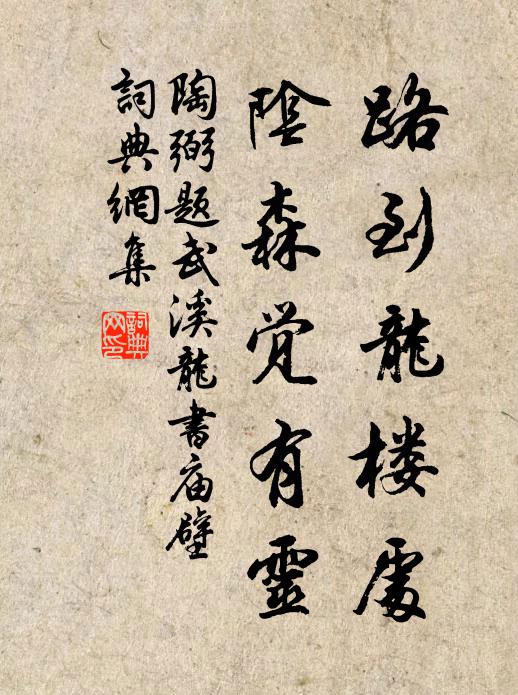 路到龍楼處
陰森覚有靈
陶弼题武溪龍書庙壁
詞典網集
詞典网印